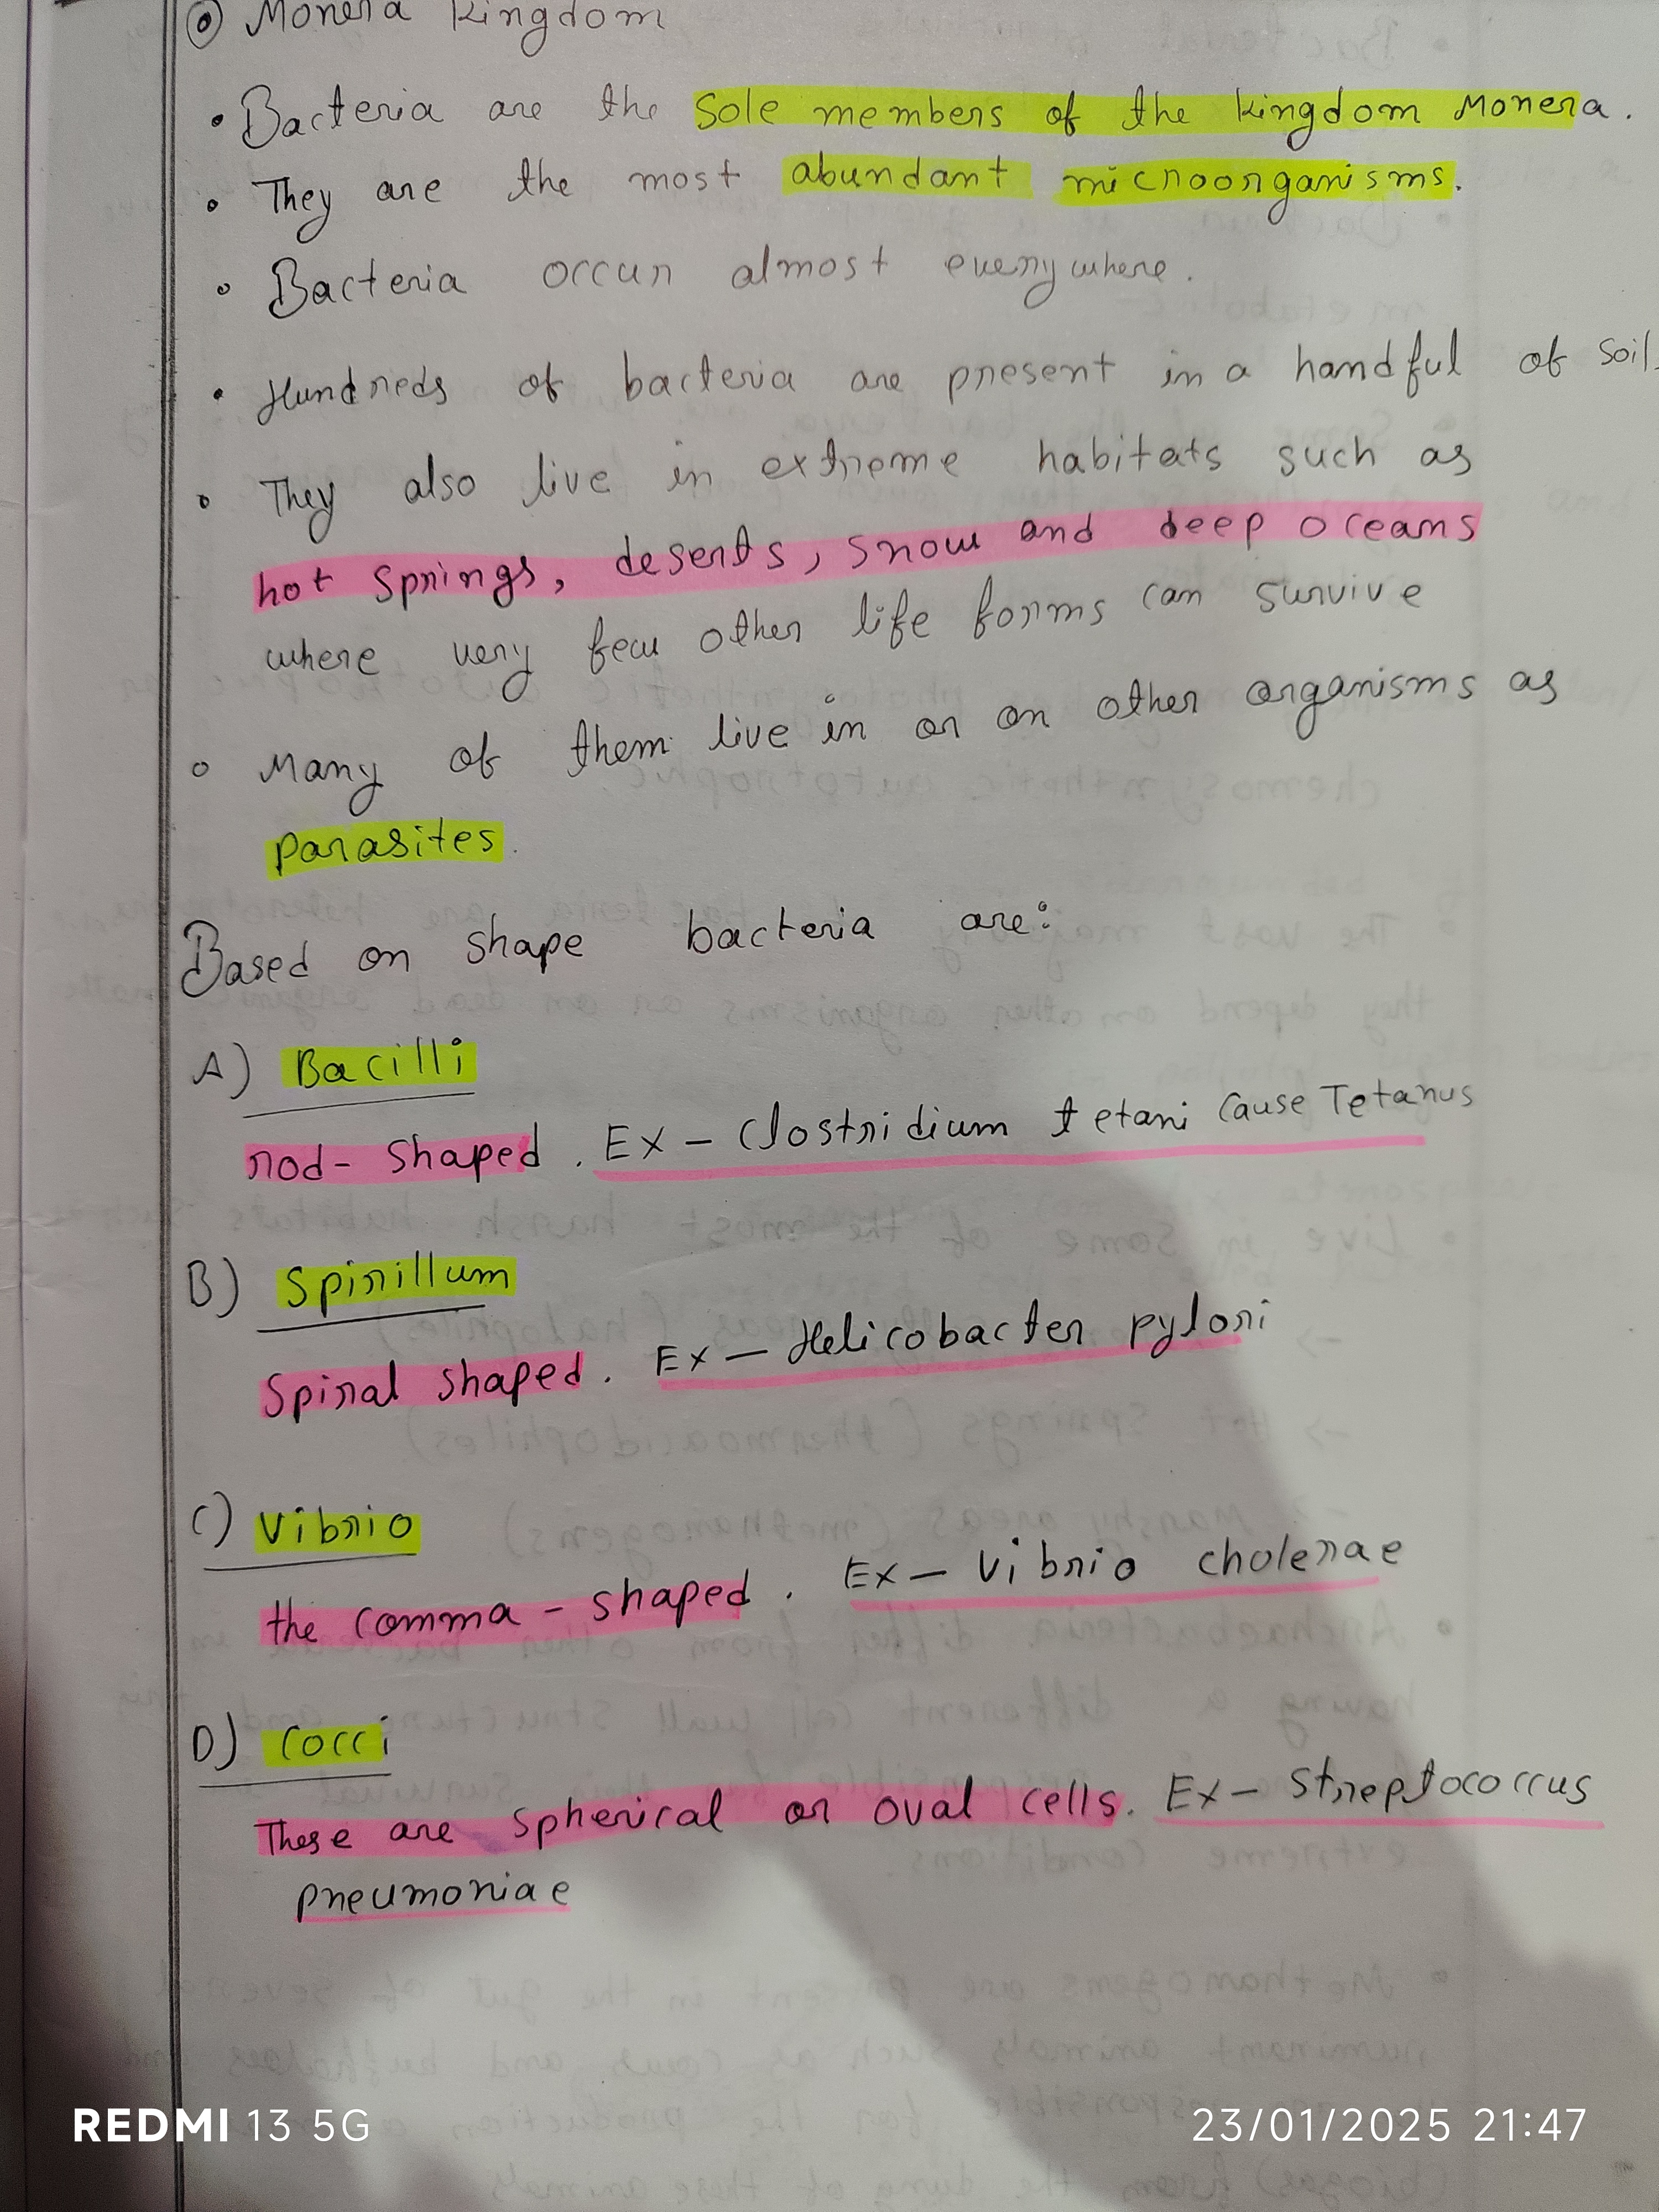 ⦿ Monera Kingdom
• Bacteria are the Sole members of the kingdom Monera.
• They are the most abundant microorganisms.
• Bacteria occur almost everywhere.
• Hundreds of bacteria are present in a handful of soil.
• They also live in extreme habitats such as
hot springs, deserts, snow and deep oceans
where very few other life forms can survive
• Many of them live in or on other organisms as
parasites.
Based on shape bacteria are:
A) Bacilli
rod-shaped. Ex - Clostridium tetani cause Tetanus
B) Spirillum
Spiral shaped. Ex - Helicobacter pylori
C) Vibrio
the comma-shaped. Ex - Vibrio cholerae
D) Cocci
These are spherical or oval cells. Ex - Streptococcus
pneumoniae
REDMI 13 5G
23/01/2025 21:47